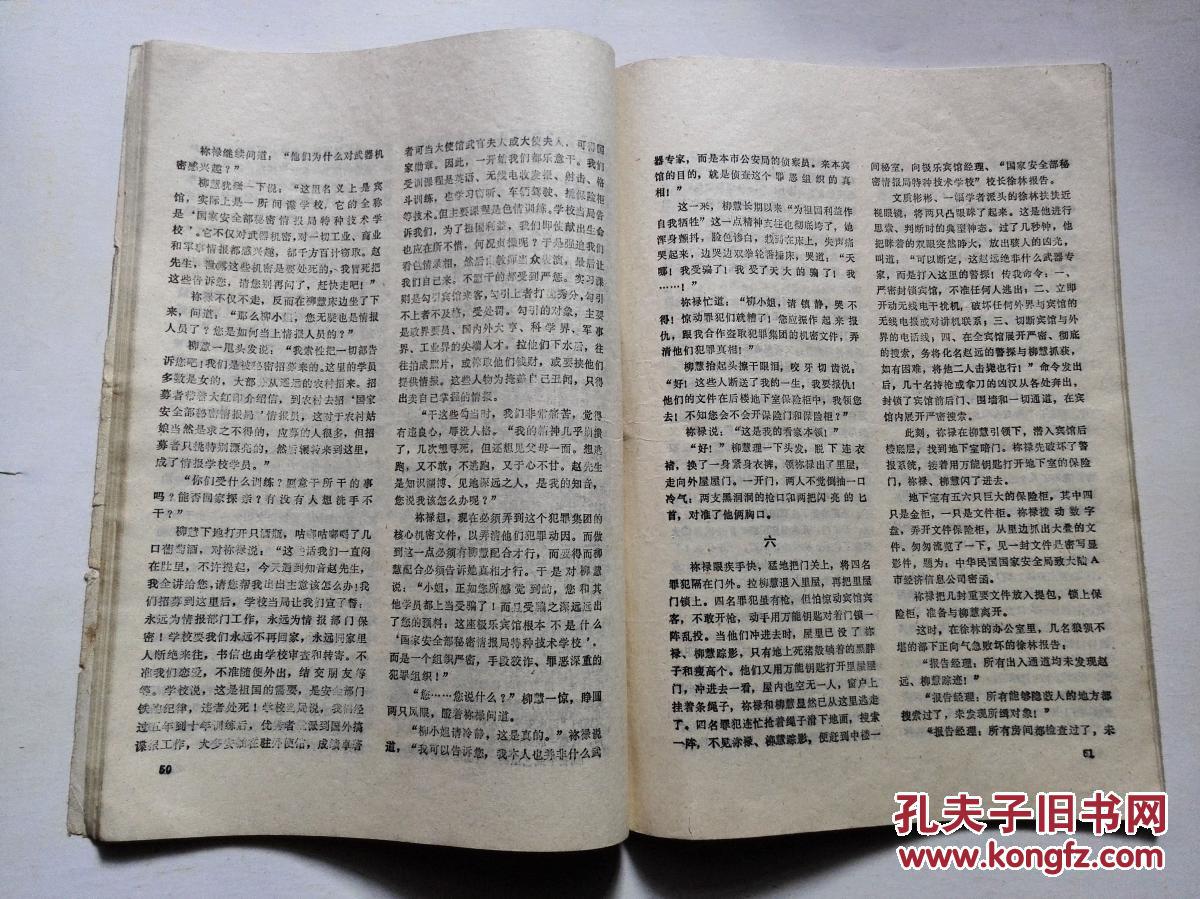 祢禄继续问道：“他们为什么对武器机
密感兴趣？”
柳慧犹疑一下说：“这里名义上是宾
馆，实际上是一所间谍学校，它的全称
是‘国家安全部秘密情报局特种技术学
校’。它不仅对武器机密，对一切工业、商业
和军事情报都感兴趣，都千方百计窃取。赵
先生，泄露这些机密是要处死的，我冒死把
这些告诉您，请您别再问了，赶快走吧！”
祢禄不仅不走，反而在柳慧床边坐了下
来，问道：“那么柳小姐，您无疑也是情报
人员了？您是如何当上情报人员的？”
柳慧一甩头发说：“我索性把一切都告
诉您吧！我们是被秘密招募来的。这里的学员
多数是女的，大都是从遥远的农村招来。招
募者带着大红印介绍信，到农村去招‘国家
安全部秘密情报局’情报员，这对于农村姑
娘当然是求之不得的，应募的人很多，但招
募者只挑特别漂亮的，然后辗转来到这里，
成了情报学校学员。”
“你们受什么训练？愿意干所干的事
吗？能否回家探亲？有没有人想洗手不
干？”
柳慧下地打开只酒瓶，咕嘟咕嘟喝了几
口葡萄酒，对祢禄说：“这些话我们一直闷
在肚里，不许提起，今天遇到知音赵先生，
我全讲给您，请您帮我出出主意该怎么办！我
们招募到这里后，学校当局让我们宣了誓：
永远为情报部门工作，永远为情报部门保
密！学校要我们永远不再回家，永远同家里
人断绝来往，书信也由学校审查和转寄。不
准我们恋爱，不准随便外出，结交朋友等
等。学校说，这是祖国的需要，是安全部门
铁的纪律，违者处死！学校当局说，我们经
过五年到十年训练后，优秀者派到国外搞
谍报工作，大多安插在驻外使馆，成绩卓著
50
者可当大使馆武官夫人或大使夫人，可得国
家勋章。因此，一开始我们都乐意干。我们
受训课程是英语、无线电收发报、射击、格
斗训练，也学习窃听、车辆驾驶、捅保险柜
等技术。但主要课程是色情训练。学校当局告
诉我们，为了祖国利益，我们即使献出生命
也应在所不惜，何况贞操呢？于是强迫我们
看色情录相，然后由教师当众表演，最后让
我们自己来。不愿干的都受到严惩。实习课
则是勾引宾馆来客，勾引上者打优秀分，勾引
不上者不及格，受处罚。勾引的对象，主要
是政界要员、国内外大亨、科学界、军事
界、工业界的尖端人才。拉他们下水后，往
往拍成照片，或诈取他们钱财，或要挟他们
提供情报。这些人物为掩藏自己丑闻，只得
出卖自己掌握的情报。
“干这些勾当时，我们非常痛苦，觉得
有违良心，辱没人格。“我的精神几乎崩溃
了，几次想寻死，但还想见父母一面。想逃
跑，又不敢，不逃跑，又于心不甘。赵先生
是知识渊博、见地深远之人，是我的知音，
您说我该怎么办呢？”
祢禄想，现在必须弄到这个犯罪集团的
核心机密文件，以弄清他们犯罪动因。而做
到这一点必须有柳慧配合才行，而要得而柳
慧配合必须告诉她真相才行。于是对柳慧
说：“小姐，正如您所感觉到的，您和其
他学员都上当受骗了！而且受骗之深远远出
了您的预料；这座极乐宾馆根本不是什么
‘国家安全部秘密情报局特种技术学校’，
而是一个组织严密，手段狡诈、罪恶深重的
犯罪组织！”
“您……您说什么？”柳慧一惊，睁圆
两只凤眼，瞪着祢禄问道。
“柳小姐请冷静，这是真的。”祢禄说
道，“我可以告诉您，我本人也并非什么武
器专家，而是本市公安局的侦察员。来本宾
馆的目的，就是侦查这个罪恶组织的真
相！”
这一来，柳慧长期以来“为祖国利益作
自我牺牲”这一点精神支柱也彻底垮了，她
浑身颤抖，脸色渗白，栽到在床上，失声痛
哭起来，边哭边双拳轮番捶床，哭道：“天
哪！我受骗了！我受了天大的骗了！我
……！”
祢禄忙道：“柳小姐，请镇静，哭不
得！惊动罪犯们就糟了！您应振作起来报
仇，跟我合作盗取犯罪集团的机密文件，弄
清他们犯罪真相！”
柳慧抬起头擦干眼泪，咬牙切齿说：
“好！这些人断送了我的一生，我要报仇！
他们的文件在后楼地下室保险柜中，我领您
去！不知您会不会开保险门和保险柜？”
祢禄说：“这是我的看家本领！”
“好！”柳慧理一下头发，脱下连衣
裙，换了一身紧身衣裤，领祢禄出了里屋，
走向外屋屋门。一开门，两人不觉倒抽一口
冷气：两支黑洞洞的枪口和两把闪亮的匕
首，对准了他俩胸口。
六
祢禄眼疾手快，猛地把门关上，将四名
罪犯隔在门外。拉柳慧退入里屋，再把里屋
门锁上。四名罪犯虽有枪，但怕惊动宾馆宾
客，不敢开枪，动手用万能钥匙对着门锁一
阵乱投。当他们冲进去时，屋里已没了祢
禄、柳慧踪影，只有地上死猪般躺着的黑胖
子和瘦高个。他们又用万能钥匙打开里屋屋
门，冲进去一看，屋内也空无一人，窗户上
挂着条绳子，祢禄和柳慧显然已从这里逃走
了。四名罪犯连忙抢着绳子滑下地面，搜索
一阵，不见祢禄、柳慧踪影，便赶到中楼一
间秘室，向极乐宾馆经理、“国家安全部秘
密情报局特种技术学校”校长徐林报告。
文质彬彬，一幅学者派头的徐林扶扶近
视眼镜，将两只凸眼眯了起来。这是他进行
思索、判断时的典型神态。过了几秒钟，他
把眯着的双眼突然睁大，放出骇人的凶光，
叫道，“可以断定，这赵远绝非什么武器专
家，而是打入这里的警探！传我命令：一、
严密封锁宾馆，不准任何人逃出；二、立即
开动无线电干扰机，破坏任何外界与宾馆的
无线电报或对讲机联系；三、切断宾馆与外
界的电话线；四、在全宾馆展开严密、彻底
的搜索，务将化名赵远的警探与柳慧抓获，
如有困难，将他二人击毙也行！”命令发出
后，几十名持枪或拿刀的凶汉从各处奔出，
封锁了宾馆前后门、围墙和一切通道，在宾
馆内展开严密搜索。
此刻，祢禄在柳慧引领下，潜入宾馆后
楼底层，找到地下室暗门。祢禄先破坏了警
报系统，接着用万能钥匙打开地下室的保险
门，祢禄、柳慧闪了进去。
地下室有五六只巨大的保险柜，其中四
只是金柜，一只是文件柜。祢禄拨动数字
盘，弄开文件保险柜，从里边抓出大叠的文
件。匆匆流览了一下，见一封文件是密写显
影件，题为：中华民国国家安全局致大陆A
市经济信息公司密函。
祢禄把几封重要文件放入提包，锁上保
险柜，准备与柳慧离开。
这时，在徐林的办公室里，几名狼狈不
堪的部下正向气急败坏的徐林报告：
“报告经理：所有出入通道均未发现赵
远、柳慧踪迹！”
“报告经理：所有能够隐蔽人的地方都
搜索过了，未发现所缉对象！”
“报告经理：所有房间都检查过了，未
51
孔夫子旧书网
www.kongfz.com